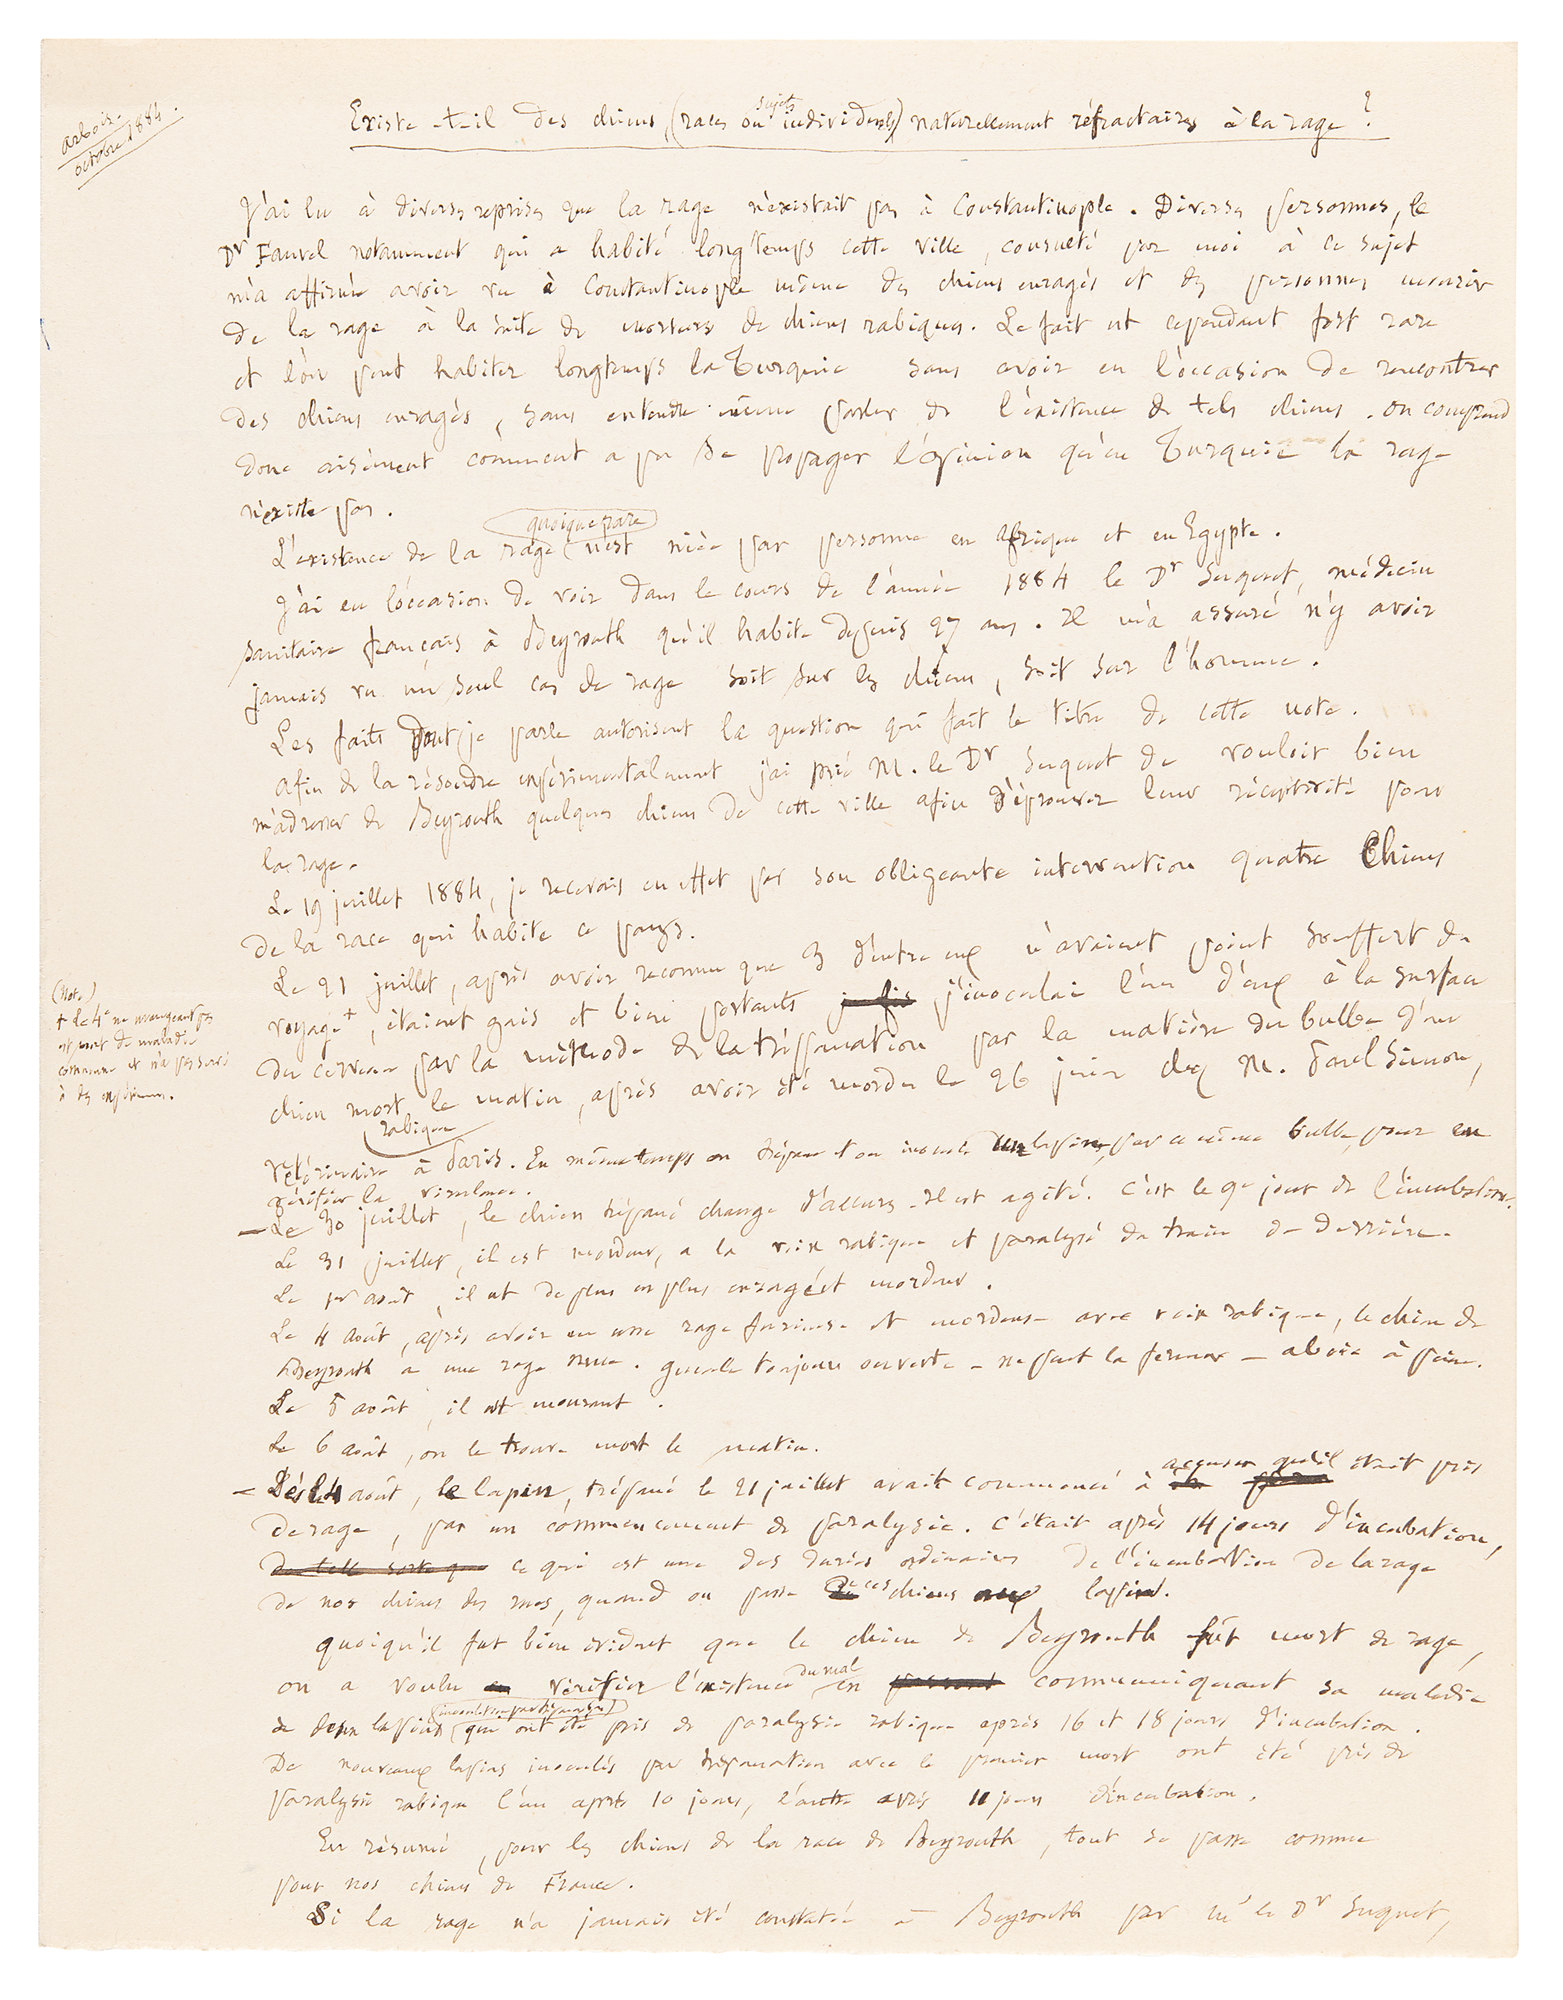 arbois.
octobre 1884.
Existe-t-il des chiens, (races ou sujets individuels) naturellement réfractaires à la rage ?
J'ai lu à diverses reprises que la rage n'existait pas à Constantinople. Diverses personnes, le
Dr Fauvel notamment qui a habité longtemps cette ville, consulté par moi à ce sujet
m'a affirmé avoir vu à Constantinople même des chiens enragés et des personnes mourir
de la rage à la suite de morsures de chiens rabiques. Le fait est cependant fort rare
et l'on peut habiter longtemps la Turquie sans avoir eu l'occasion de rencontrer
des chiens enragés, sans entendre même parler de l'existence de tels chiens. On comprend
donc aisément comment a pu se propager l'opinion qu'en Turquie la rage
n'existe pas.
quoique rare
L'existence de la rage n'est niée par personne en afrique et en Egypte.
J'ai eu l'occasion de voir dans le cours de l'année 1884 le Dr Suquet, médecin
sanitaire français à Beyrouth qu'il habite depuis 27 ans. Il m'a assuré n'y avoir
jamais vu un seul cas de rage soit sur les chiens, soit sur l'homme.
Les faits dont je parle autorisent la question qui fait le titre de cette note.
afin de la résoudre expérimentalement j'ai prié M. le Dr Suquet de vouloir bien
m'adresser de Beyrouth quelques chiens de cette ville afin d'éprouver leur réceptivité pour
la rage.
Le 19 juillet 1884, je recevais en effet par son obligeante intervention quatre chiens
de la race qui habite ce pays.
Le 21 juillet, après avoir reconnu que 3 d'entre eux n'avaient point souffert du
voyage+, étaient gais et bien portants je fis j'inoculai l'un d'eux à la surface
du cerveau par la méthode de la trépanation par la matière du bulbe d'un
chien mort rabique le matin, après avoir été mordu le 26 juin chez M. Paul Simon,
(Note)
+ le 4e ne mangeant pas
est mort de maladie
commune et n'a pas servi
à des expériences.
vétérinaire à Paris. En même temps on trépane et on inocule un lapin, par ce même bulbe, pour en
vérifier la virulence.
- Le 30 juillet, le chien trépané change d'allures. Il est agité. C'est le 9e jour de l'incubation.
Le 31 juillet, il est mordeur, a la voix rabique et paralysé du train de derrière.
Le 1er août, il est de plus en plus enragé et mordeur.
Le 4 août, après avoir eu une rage furieuse et mordeuse avec voix rabique, le chien de
Beyrouth a une rage mue. gueule toujours ouverte - ne peut la fermer - aboie à peine.
Le 5 août, il est mourant.
Le 6 août, on le trouve mort le matin.
- Dès le 4 août, le lapin, trépané le 21 juillet avait commencé à accuser qu'il était pris
de rage, par un commencement de paralysie. C'était après 14 jours d'incubation,
de telle sorte que ce qui est une des durées ordinaires de l'incubation de la rage
de nos chiens des rues, quand on passe de ces chiens aux lapins.
quoiqu'il fut bien évident que le chien de Beyrouth fût mort de rage,
on a voulu en vérifier l'existence du mal en passant communiquant sa maladie
à deux lapins (inoculation par trépanation) qui ont été pris de paralysie rabique après 16 et 18 jours d'incubation.
De nouveaux lapins inoculés par trépanation avec le premier mort ont été pris de
paralysie rabique l'un après 10 jours, l'autre après 11 jours d'incubation.
En résumé, pour les chiens de la race de Beyrouth, tout se passe comme
pour nos chiens de France.
Si la rage n'a jamais été constatée à Beyrouth par M. le Dr Suquet,